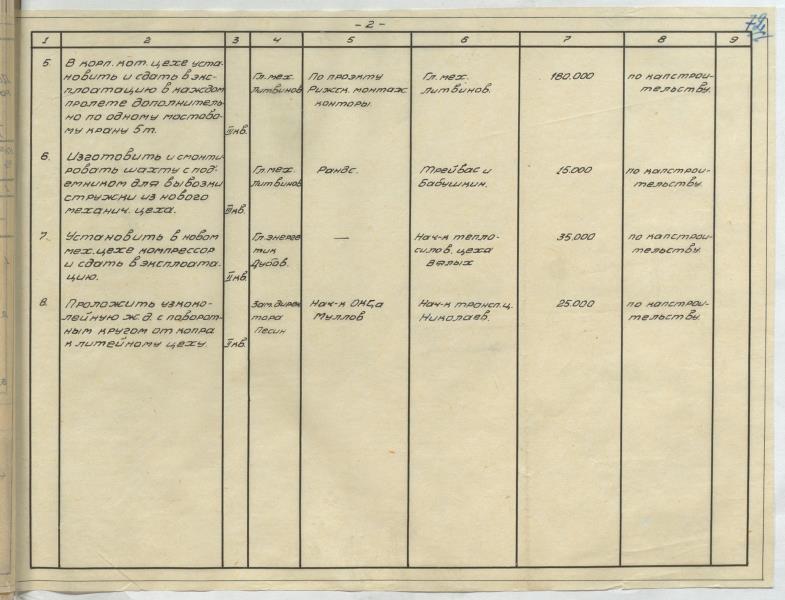 - 2 -
1 2 3 4 5 6 7 8 9
5. В корп. кот. цехе уста-
новить и сдать в экс-
плоатацию в каждом
пролете дополнитель-
но по одному мостово-
му крану 5 т.
III кв.
Гл. мех.
Литвинов
По проэкту
Рижск. монтаж
конторы.
Гл. мех.
Литвинов.
180.000
по капстрои-
тельству.
6. Изготовить и смонти-
ровать шахту с подъ-
емником для вывозки
стружки из нового
механич. цеха.
III кв.
Гл. мех.
Литвинов
Рандс.
Трейвас и
Бабушкин.
15.000
по капстрои-
тельству.
7. Установить в новом
мех. цехе компрессор
и сдать в эксплоата-
цию.
II кв.
Гл. энерге
тик
Дубов.
—
Нач-к тепло-
силов. цеха
Вялых
35.000
по капстрои-
тельству.
8. Проложить узкоко-
лейную ж.д. с поворот-
ным кругом от копра
к литейному цеху.
II кв.
Зам. дирек
тора
Песин
Нач-к ОКС'а
Муллов
Нач-к трансп. ц.
Николаев.
25.000
по капстрои-
тельству.